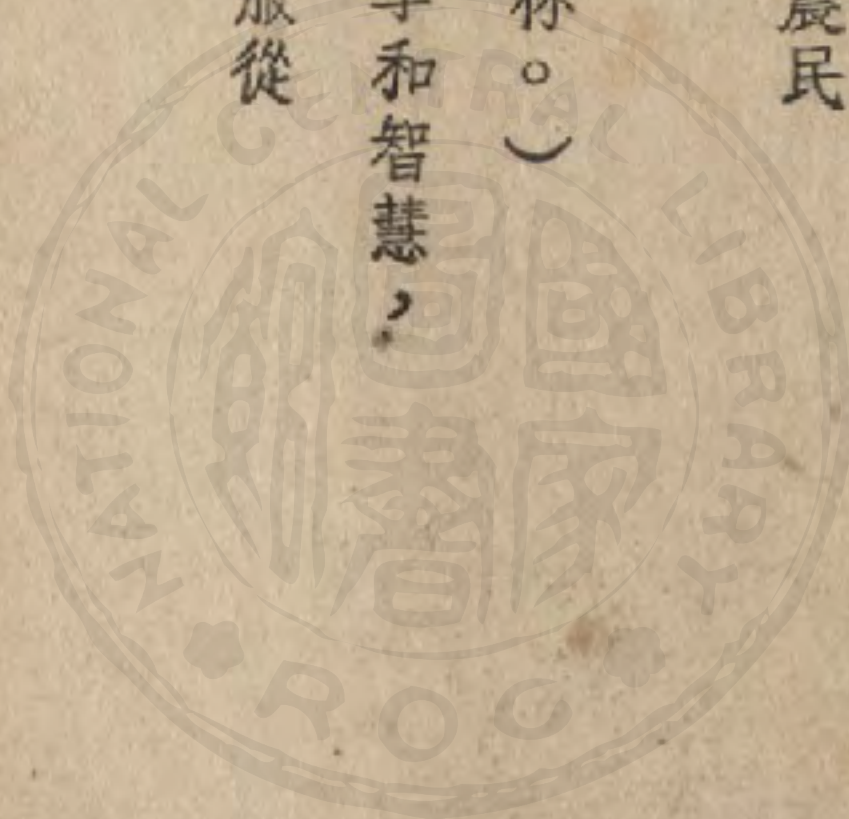 農民
你。）
和智慧，
服從
NATIONAL CENTRAL LIBRARY
ROC
國家圖書館